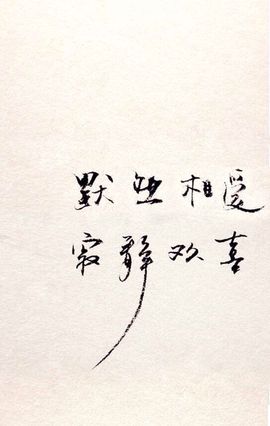 默然相愛
寂静欢喜